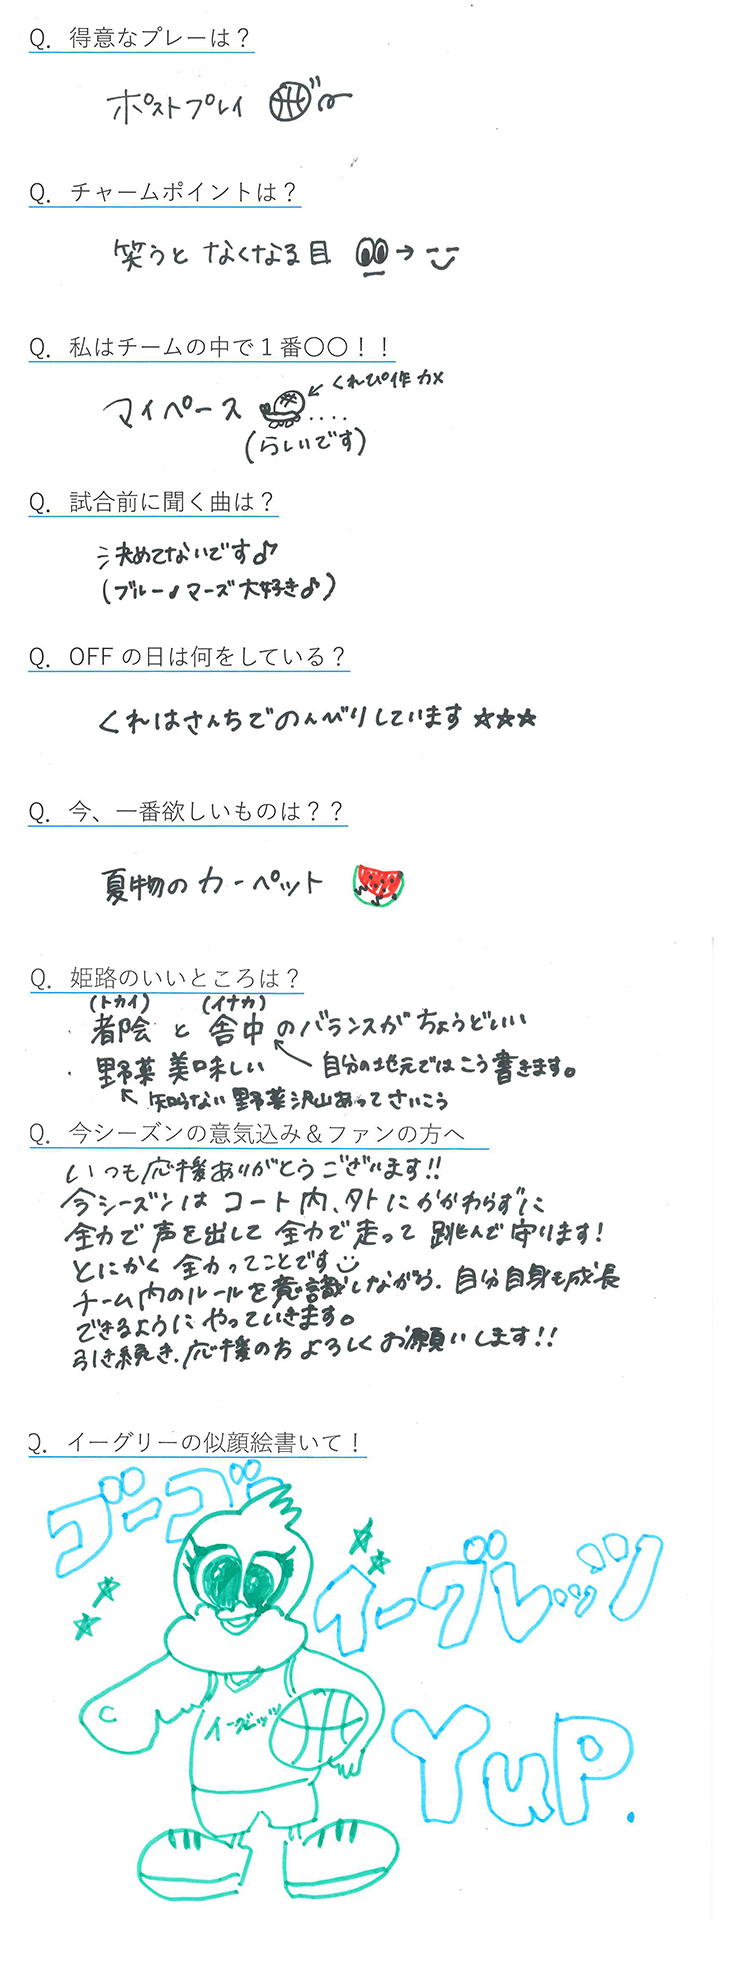 Q. 得意なプレーは？
ポストプレイ
Q. チャームポイントは？
笑うと なくなる目
Q. 私はチームの中で１番〇〇！！
←くれぴ作カメ
マイペース ....
(らしいです)
Q. 試合前に聞く曲は？
決めてないです♪
(ブルーノマーズ大好き♪)
Q. OFF の日は何をしている？
くれはさんちでのんびりしています ☆☆☆
Q. 今、一番欲しいものは？？
夏物のカーペット
Q. 姫路のいいところは？
(トカイ) (イナカ)
・都会 と 舎中 のバランスが ちょうどいい
・野菜 美味しい 自分の地元ではこう書きます。
知らない野菜沢山あってさいこう
Q. 今シーズンの意気込み＆ファンの方へ
いつも応援ありがとうございます!!
今シーズンは コート内、外にかかわらずに
全力で 声を出して 全力で走って 跳んで 守ります!
とにかく 全力ってことです
チーム内のルールを意識しながら、自分自身も成長
できるように やっていきます。
引き続き、応援の方 よろしくお願いします!!
Q. イーグリーの似顔絵書いて！
ゴーゴー
イーグレッツ
イーグレッツ
YuP.